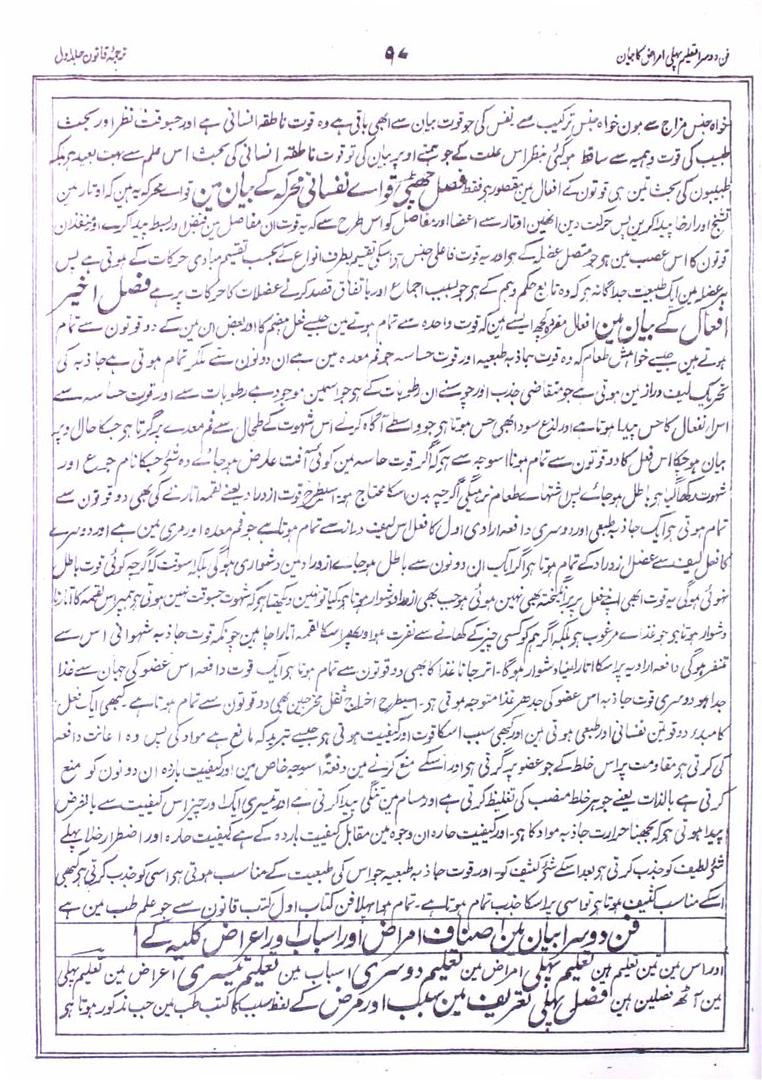 فن دوسرا تعلیم پہلی امراض کا بیان ۹۷ ترجمۂ قانون جلد اول
خواہ جنس مزاج سے ہون خواہ جنس ترکیب سے نفس کی جو قوت بیان سے ابھی باقی ہے وہ قوت ناطقہ انسانی ہے اور جسوقت نظر اور بحث
طبیب کی قوت وہمیہ سے ساقط ہو گئی بنظر اس علت کے جو ہمنے اوپر بیان کی تو قوت ناطقہ انسانی کی بحث اس علم سے بہت بعید ہے بلکہ
طبیبون کی بحث تین ہی قوتون کے افعال مین مقصور ہے فقط فصل چھٹی قواے نفسانی محرکہ کے بیان مین قواے محرکہ یہ ہین کہ اوتار مین
تشنج اور ارخا پیدا کرین پس حرکت دین انھین اوتار سے اعضا اور مفاصل کو اس طرح سے کہ یہ قوت ان مفاصل مین قبض اور بسط پیدا کرے اور نفذان
قوتون کا اس عصب مین ہے جو متصل عضل کے ہے اور یہ قوت فاعلی جنس ہے اسکی تقسیم بطرف انواع کے بحسب تقسیم مبادی حرکات کے ہوتی ہے پس
ہر عضلہ مین ایک طبیعت جداگانہ ہے کہ وہ تابع حکم وہم کے ہے جو بسبب اجماع اور باتفاق قصد کرنے عضلات کا حرکات پر ہے فصل اخیر
افعال کے بیان مین افعال مفردہ کچھ ایسے ہین کہ قوت واحدہ سے تمام ہوتے ہین جیسے فعل ہضم کا اور بعض ان مین کے دو قوتون سے تمام
ہوتے ہین جیسے خواہش طعام کہ وہ قوت جاذبہ طبعیہ اور قوت حساسہ جو فم معدہ مین ہے ان دونون سے ملکر تمام ہوتی ہے جاذبہ کی
تحریک لیف دراز مین ہوتی ہے جو متقاضی جذب اور چوسنے ان رطوبات کے ہے جو اسمین موجود ہے رطوبات سے اور قوت حاسہ سے
اس انفعال کا حس پیدا ہوتا ہے اور لذع سودا بھی حس ہوتا ہے جو واسطے آگاہ کرنے اس شہوت کے طحال سے فم معدے پر گرتا ہے جسکا حال اوپر
بیان ہو چکا اس فعل کا دو قوتون سے تمام ہونا اسوجہ سے ہے کہ اگر قوت حاسہ مین کوئی آفت عارض ہو جائے وہ شئی جسکا نام جوع اور
شہوت رکھا گیا ہے باطل ہو جائے پس اشتہاے طعام نرہیگی اگرچہ بدن اسکا محتاج ہو اسیطرح قوت ازدراد یعنے لقمہ اتارنے کی بھی دو قوتون سے
تمام ہوتی ہے ایک جاذبہ طبعی اور دوسری دافعہ ارادی اول کا فعل اس لیف دراز سے تمام ہوتا ہے جو فم معدہ اور مری مین ہے اور دوسرے
کا فعل لیف سے عضل ازدراد کے تمام ہوتا ہے اگر ایک ان دونون سے باطل ہو جاے ازدراد مین دشواری ہوگی بلکہ اسوقت کہ اگرچہ کوئی قوت باطل
نہوئی ہوگی یہ قوت ابھی اپنے فعل پر برانگیختہ بھی نہین ہوئی ہو جب بھی ازدراد دشوار ہوتا ہے کیا تو نہین دیکھتا ہے کہ شہوت جسوقت نہین ہوتی ہے ہمپر اس لقمہ کا اتارنا
دشوار ہوتا ہے جو غذاے مرغوب ہے بلکہ اگر ہم کو کسی چیز کے کھانے سے نفرت ہو اور پھر اسکا لقمہ اتارا چاہین چونکہ قوت جاذبہ شہوانی اس سے
متنفر ہوگی دافعہ ارادیہ پر اسکا اتارلینا دشوار ہوگا۔ اتر جانا غذا کا بھی دو قوتون سے تمام ہوتا ہے ایک قوت دافعہ اس عضو کی جہان سے غذا
جدا ہو دوسری قوت جاذبہ اس عضو کی جدھر غذا متوجہ ہوتی ہو۔ اسیطرح اخراج ثقل مخرجین بھی دو قوتون سے تمام ہوتا ہے۔ کبھی ایک فعل
کا مبدء دو قوتین نفسانی اور طبعی ہوتی ہین اور کبھی سبب اسکا قوت اور کیفیت ہوتی ہے جیسے تبرید کہ مانع ہے مواد کی پس وہ اعانت دافعہ
کی کرتی ہے مقاومت پر اس خلط کے جو عضو پر گرتی ہے اور اسکے منع کرنے مین دفعۃً اسوجہ خاص مین اور کیفیت بارہ ان دونون کو منع
کرتی ہے بالذات یعنے جوہر خلط منصب کی تغلیظ کرتی ہے اور مسام مین تنگی پیدا کرتی ہے اور تیسری ایک اور چیز اس کیفیت سے بالعرض
پیدا ہوتی ہے کہ بجھنا حرارت جاذبہ مواد کا ہے۔ اور کیفیت حارہ ان وجوہ مین مقابل کیفیت باردہ کے ہے کیفیت حارہ اور اضطرار خلا پہلے
شئی لطیف کو جذب کرتی ہے بعد اسکے شئی کثیف کو۔ اور قوت جاذبہ طبعیہ جو اس کی طبیعت کے مناسب ہوتی ہے اسی کو جذب کرتی ہے کبھی
اسکے مناسب کثیف ہوتا ہے تو اسی پر اسکا جذب تمام ہوتا ہے۔ تمام ہوا پہلا فن کتاب اول کتب قانون سے جو علم طب مین ہے
فن دوسرا بیان مین اصناف امراض اور اسباب اور اعراض کلیہ کے
اور اس مین تین تعلیم ہین تعلیم پہلی امراض مین تعلیم دوسری اسباب مین تعلیم تیسری اعراض مین تعلیم پہلی
مین آٹھ فصلین ہین فصل پہلی تعریف مین سبب اور مرض کے لفظ سبب کا کتب طب مین جب مذکور ہوتا ہے